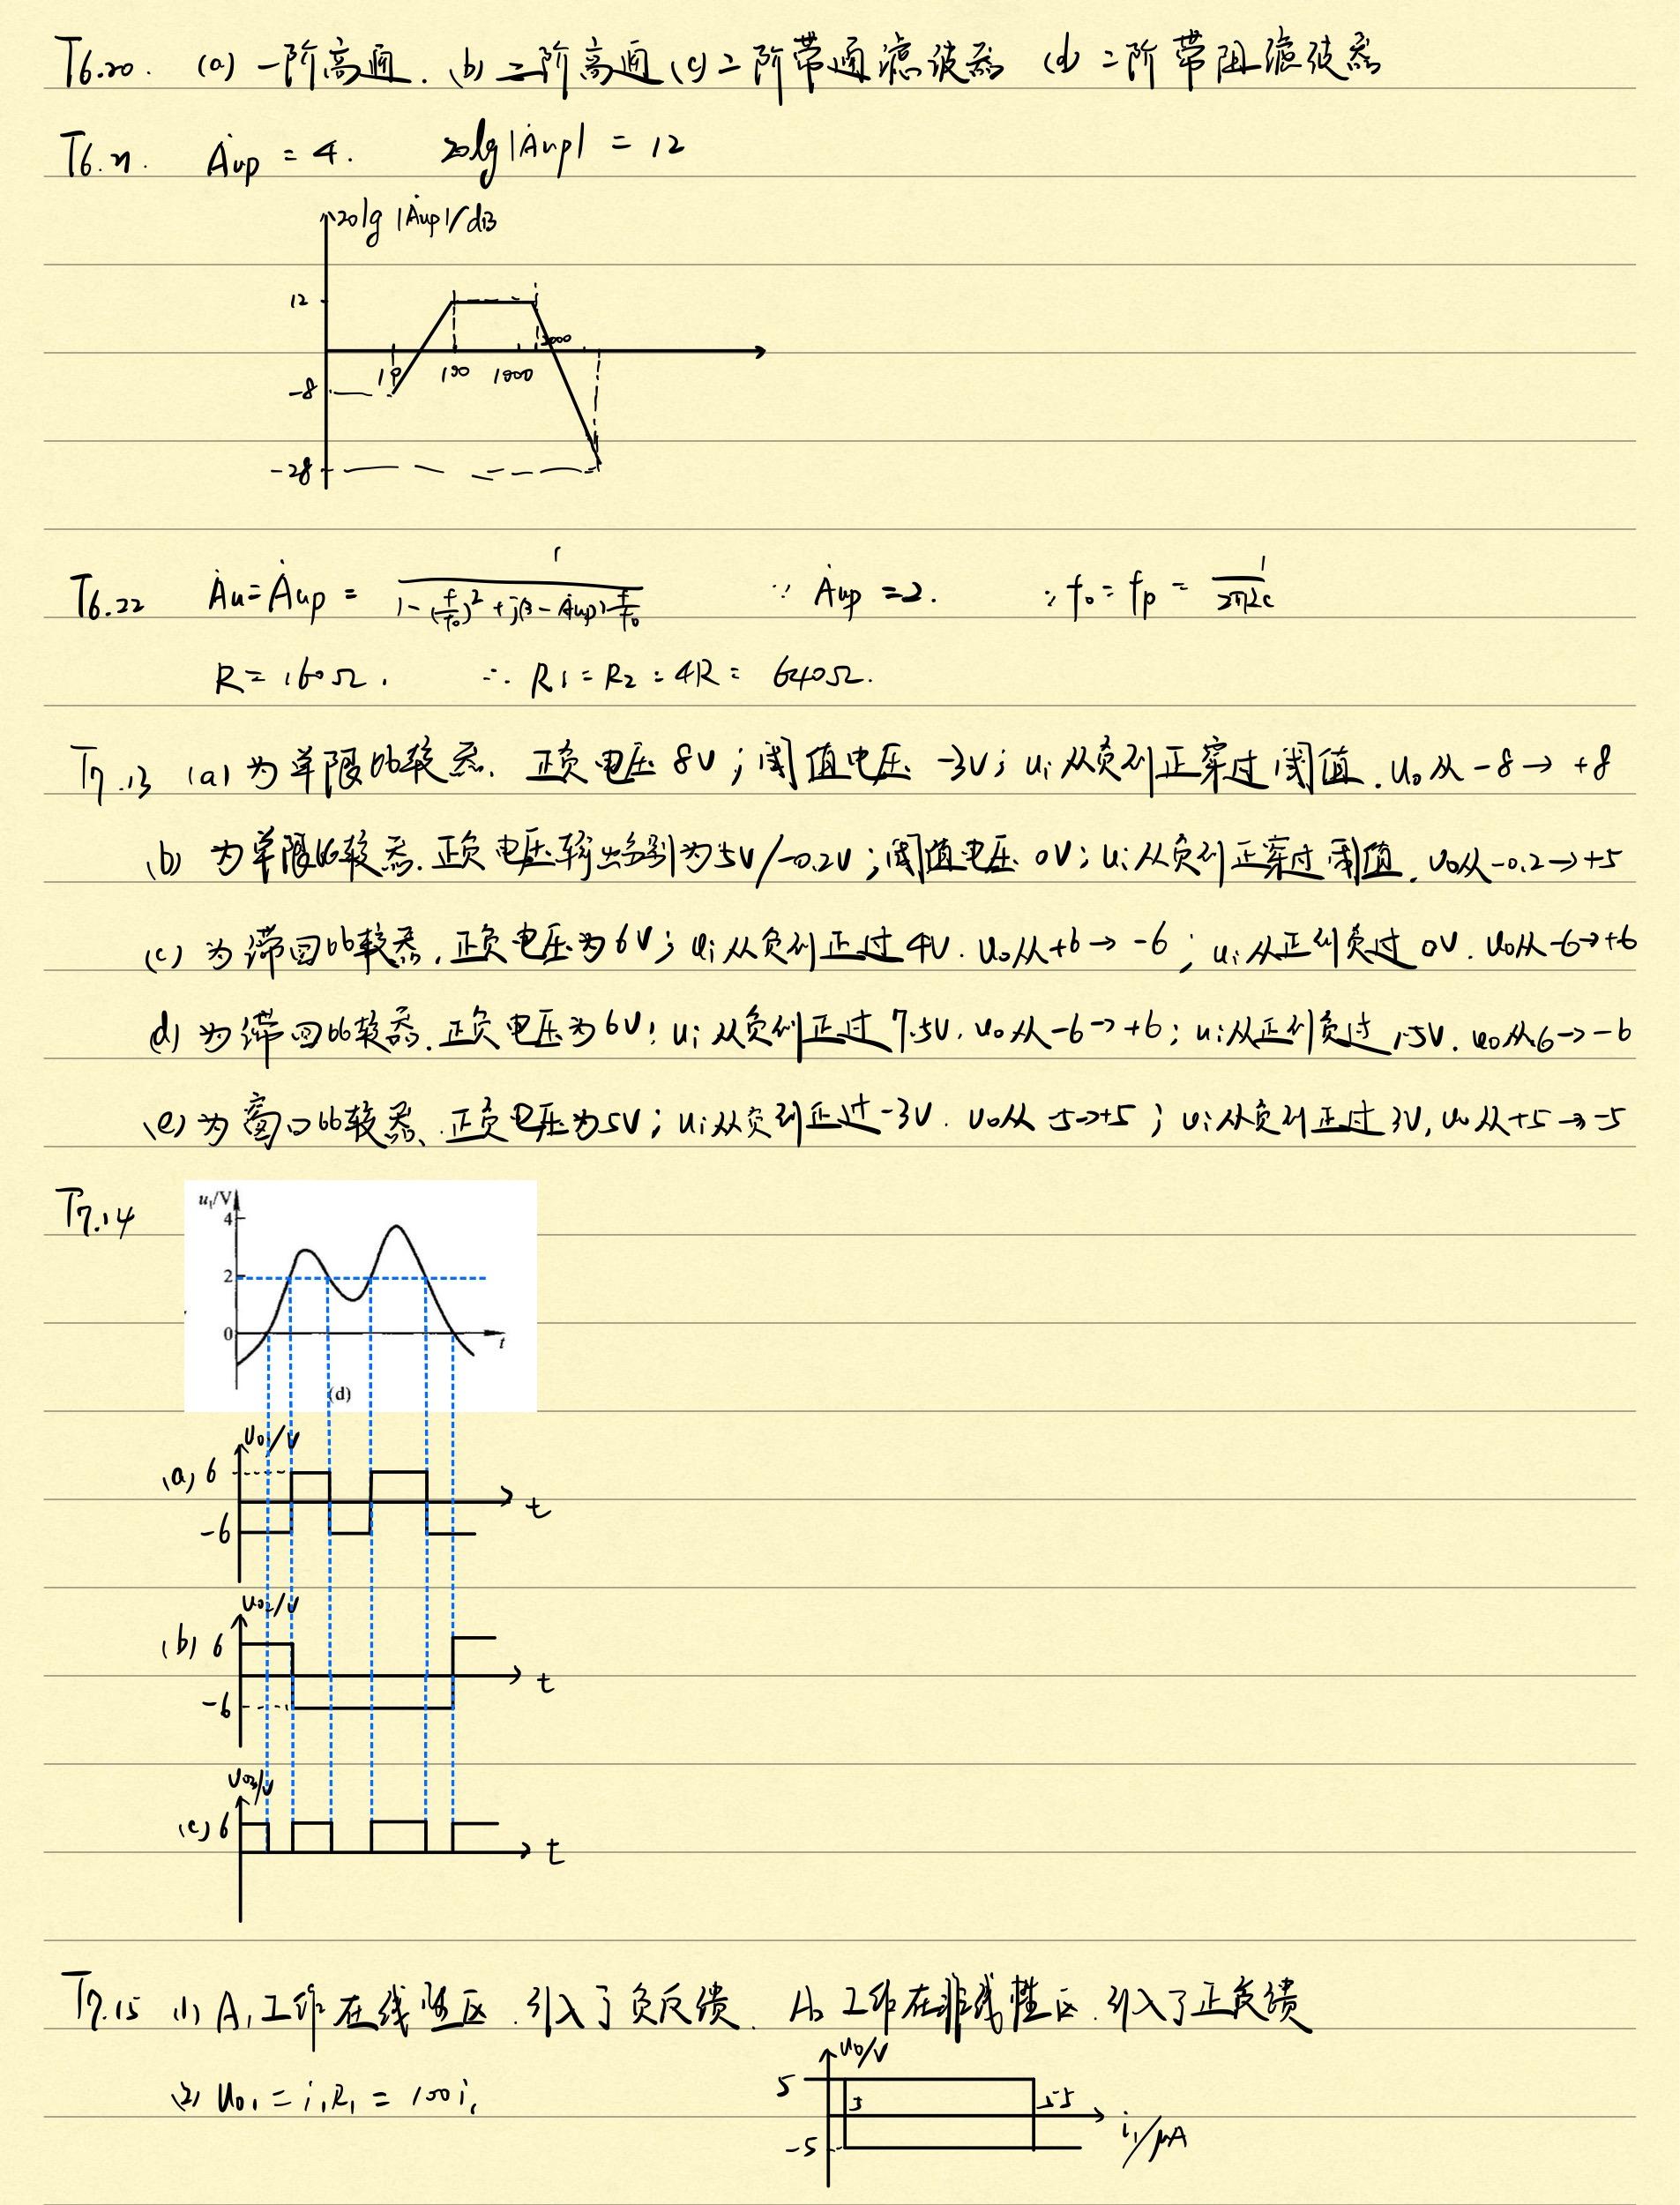 T6.20. (a) 一阶高通. (b) 二阶高通 (c) 二阶带通滤波器 (d) 二阶带阻滤波器
T6.21. Ȧup = 4. 20lg|Ȧup| = 12
20lg |Ȧup|/dB
12
3000
10 100 1000
-8
-28
T6.22 Ȧu = Ȧup = 1 / (1-(f/f0)² + j(3-Ȧup) f/f0) ∵ Ȧup = 2. ∵ f0 = fp = 1/2πRC
R = 160Ω. ∴ R1 = R2 = 4R = 640Ω.
T7.13 (a) 为单限比较器. 正负电压 8V; 阈值电压 -3V; ui从负到正穿过阈值. uo从 -8 → +8
(b) 为单限比较器. 正负电压输出分别为5V/-0.2V; 阈值电压 0V; ui从负到正穿过阈值. uo从-0.2→+5
(c) 为滞回比较器. 正负电压为6V; ui从负到正过4V. uo从+6→-6; ui从正到负过0V. uo从-6→+6
(d) 为滞回比较器. 正负电压为6V; ui从负到正过7.5V. uo从-6→+6; ui从正到负过1.5V. uo从6→-6
(e) 为窗口比较器. 正负电压为5V; ui从负到正过-3V. uo从-5→+5; ui从负到正过3V, uo从+5→-5
T7.14
uI/V
4
2
0 t
(d)
uo1/V
(a) 6
t
-6
uo2/V
(b) 6
t
-6
uo3/V
(c) 6
t
T7.15 (1) A1工作在线性区. 引入了负反馈. A2工作在非线性区. 引入了正反馈
(2) uo1 = i1R1 = 100i1
uo/V
5
5 55
i1/μA
-5